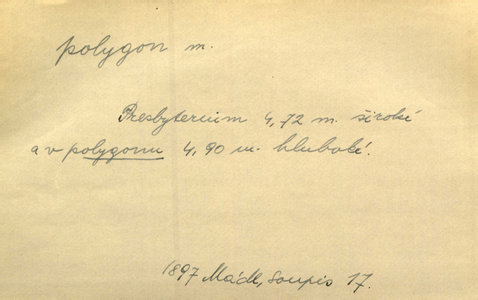 polygon m.
Presbyterium 4,72 m. široké
a v polygonu 4,90 m. hluboké.
1897 Mádl, Soupis 17.